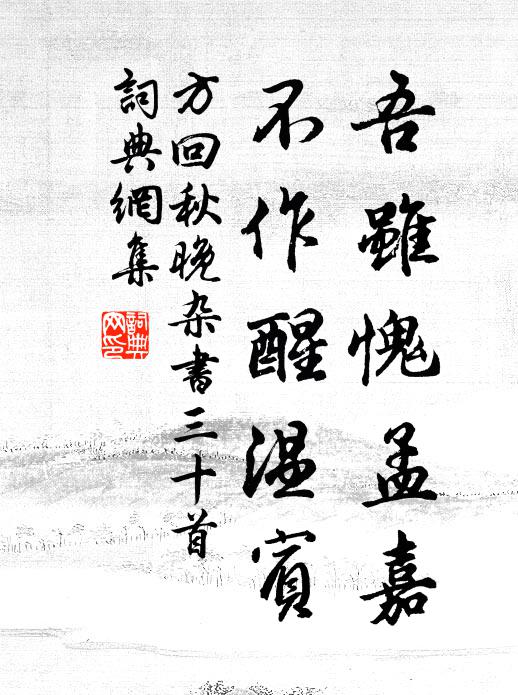 吾雖愧孟嘉
不作醒温賓
方回秋晚杂書三十首
詞典網集
詞典網印